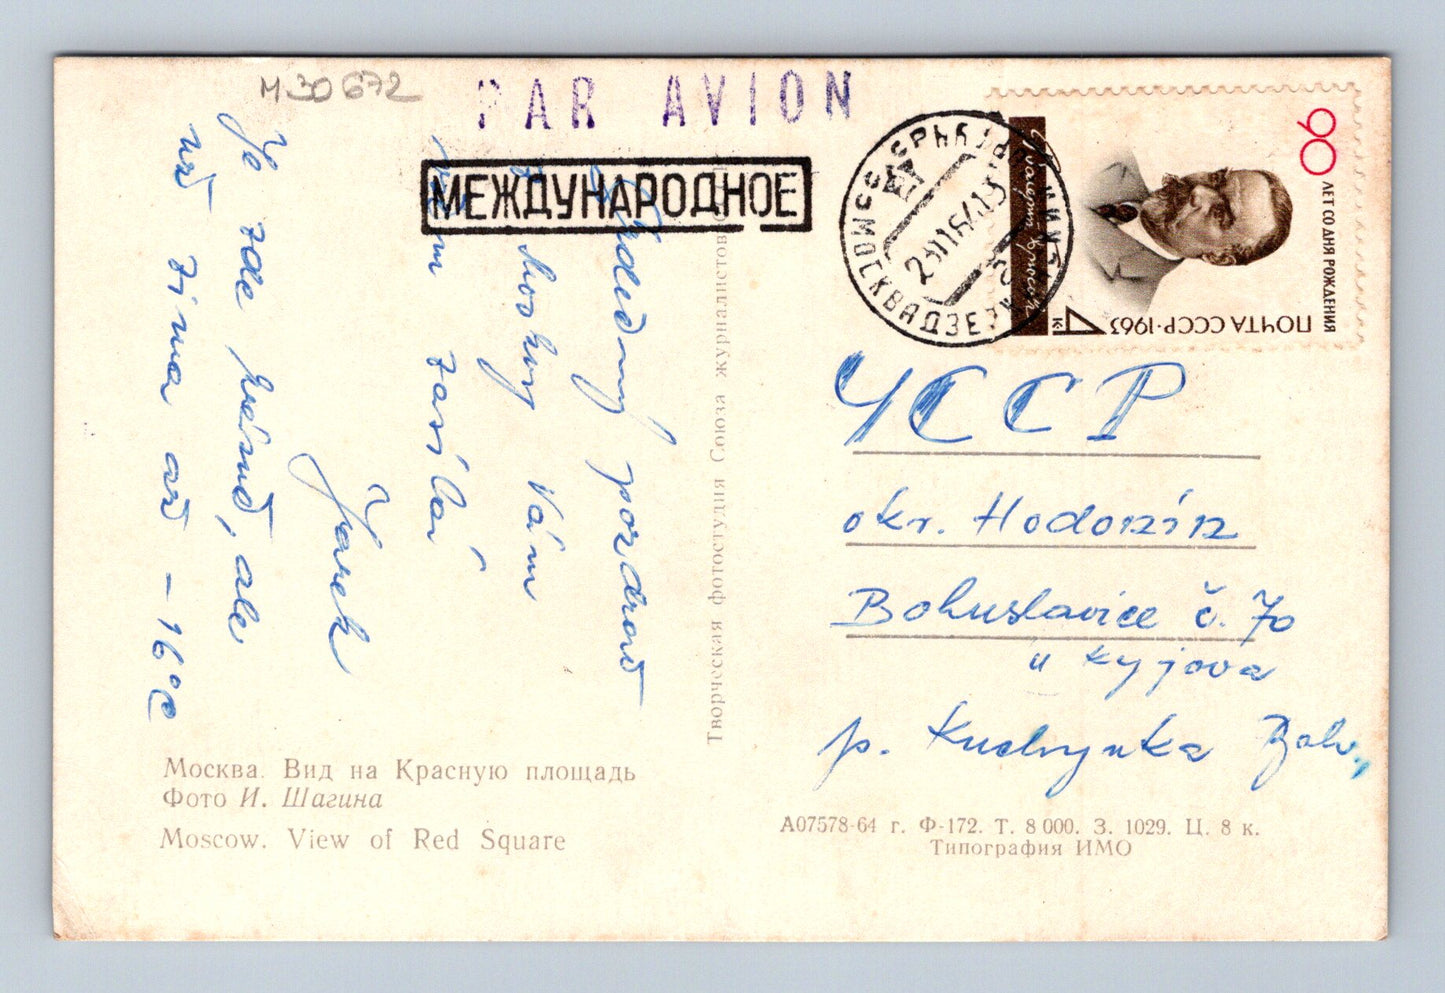 M30672
PAR AVION
МЕЖДУНАРОДНОЕ
Srdečný pozdrav
z Moskvy Vám
všem zasílá
Jarek
Je zde krásně, ale
už zima až -16°C
90
ЛЕТ СО ДНЯ РОЖДЕНИЯ
ПОЧТА СССР·1963
4 К
Валерий Брюсов
МОСКВА
ЧССР
okr. Hodonín
Bohuslavice č. 70
u Kyjova
p. Kuchyňka Boh.,
Творческая фотостудия Союза журналистов
Москва. Вид на Красную площадь
Фото И. Шагина
Moscow. View of Red Square
А07578-64 г. Ф-172. Т. 8 000. З. 1029. Ц. 8 к.
Типография ИМО